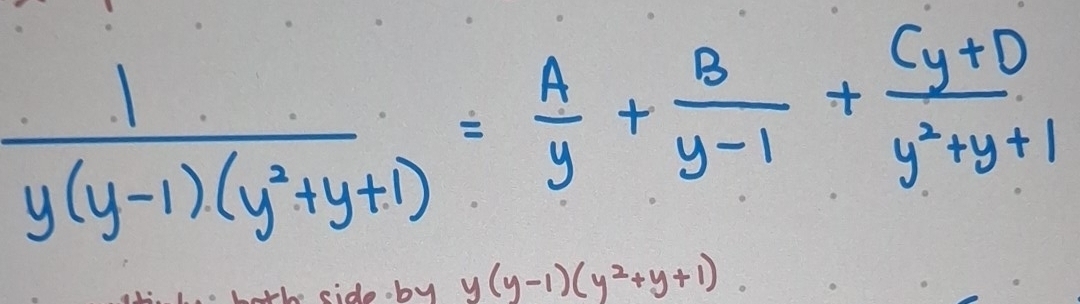 1/(y(y-1)(y²+y+1)) = A/y + B/(y-1) + (Cy+D)/(y²+y+1)
both side by y(y-1)(y²+y+1)